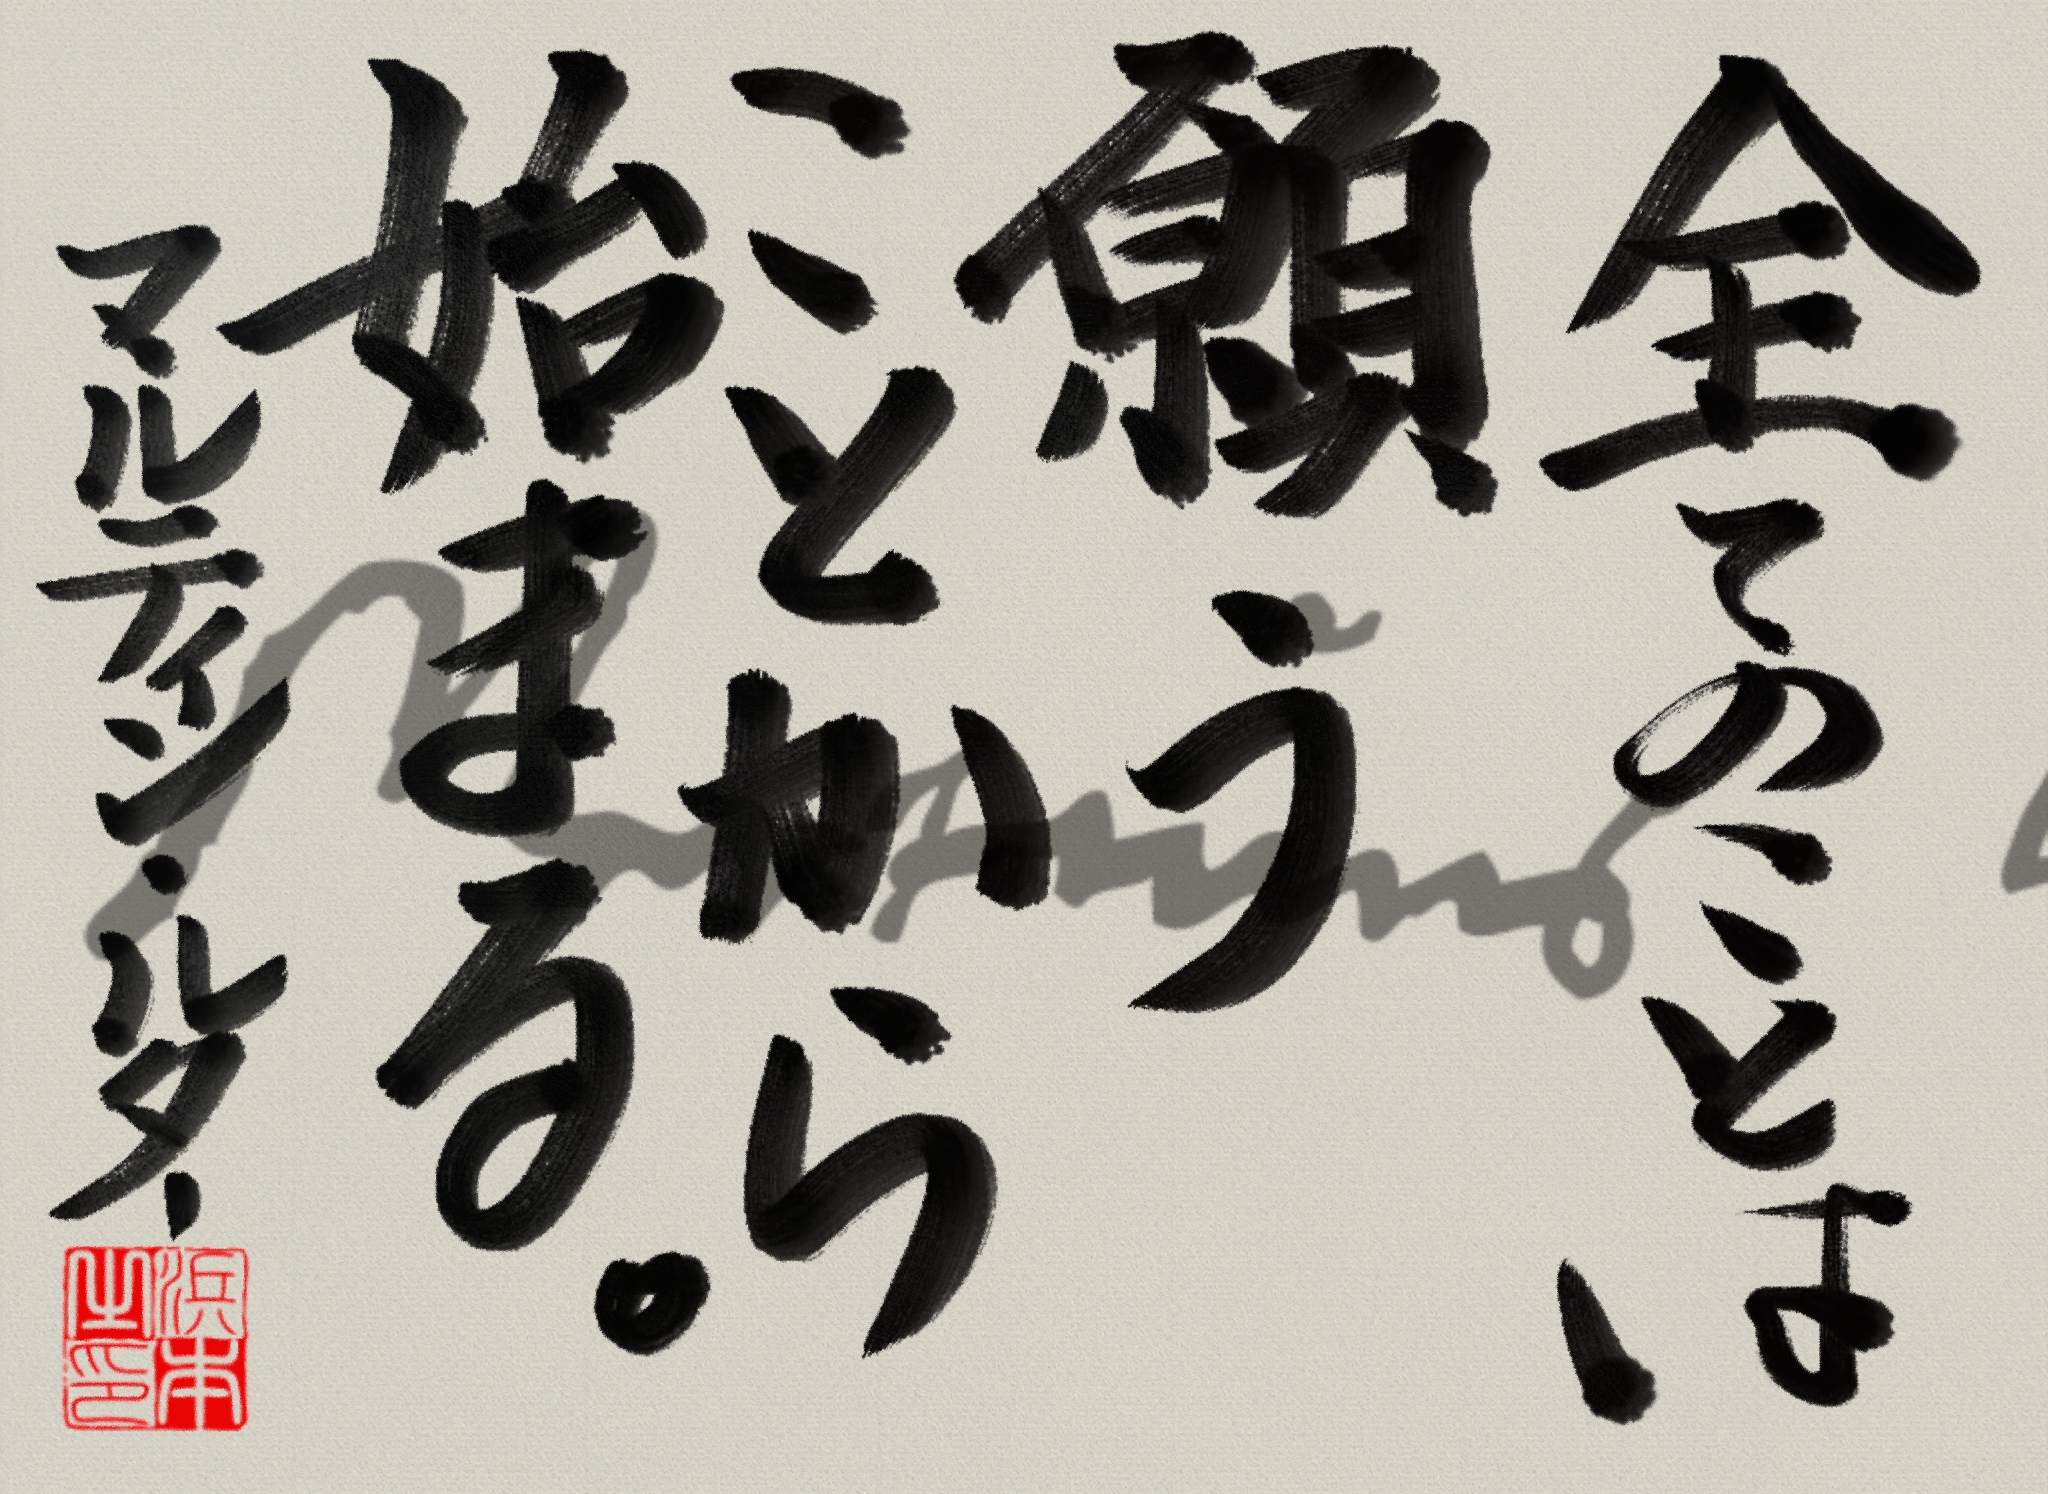 全てのことは、
願う
ことから
始まる。
マルティン・ルター
浜本
之印